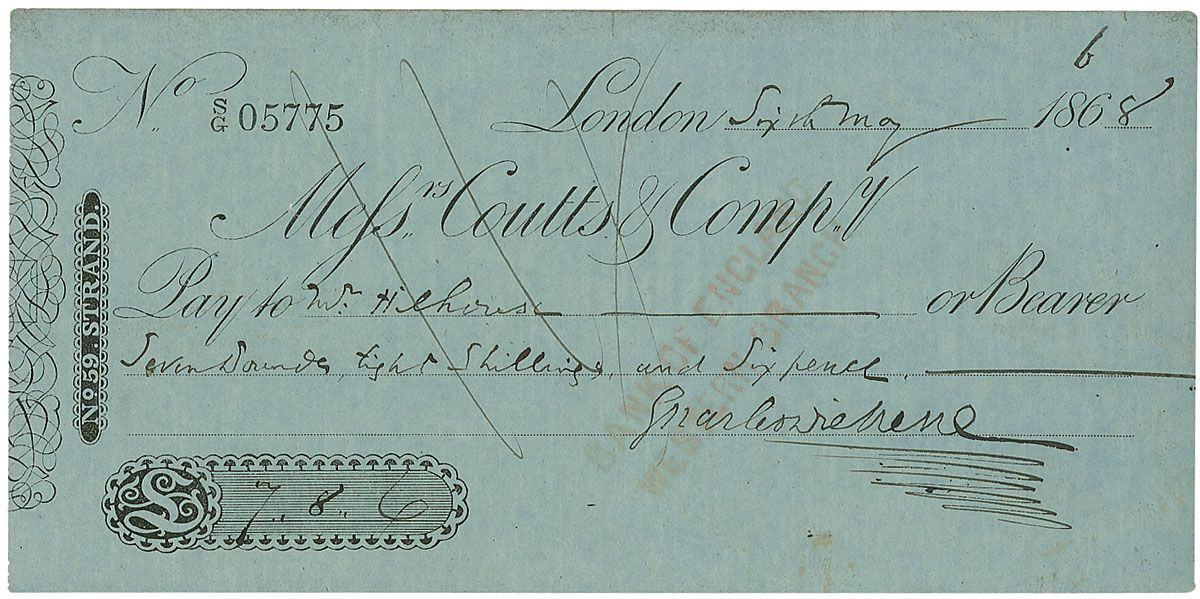 6
No. S/G 05775 London Sixth May 1868
Messrs. Coutts & Compy.
No 59. STRAND.
Pay to Mr. Hilhouse or Bearer
Seven Pounds, Eight Shillings, and Sixpence.
Charles Dickens
£ 7 „ 8 „ 6
BANK OF ENGLAND
WESTERN BRANCH